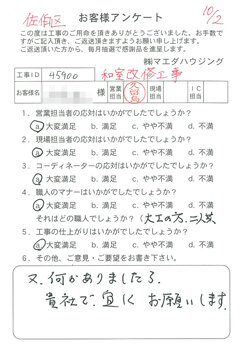 佐伯区
10/2
お客様アンケート
この度は工事のご用命を頂きありがとうございました。お手数で
すがご記入頂き、ご返送頂きますようお願い申し上げます。
ご返送頂いた方から、毎月抽選で感謝品を進呈します。
㈱マエダハウジング
工事ID 45900 和室改修工事
お客様名 様 営業担当 現場担当 IC担当
1．営業担当者の応対はいかがでしたでしょうか？
a 大変満足 b. 満足 c. やや不満 d. 不満
2．現場担当者の応対はいかがでしたでしょうか？
a 大変満足 b. 満足 c. やや不満 d. 不満
3．コーディネーターの応対はいかがでしたでしょうか？
a. 大変満足 b. 満足 c. やや不満 d. 不満
4．職人のマナーはいかがでしたでしょうか？
a 大変満足 b. 満足 c. やや不満 d. 不満
それはどの職人でしょうか？（大工の方、二人共
5．工事の仕上がりはいかがでしたでしょうか？
a 大変満足 b. 満足 c. やや不満 d. 不満
6．その他、ご意見・ご要望をお書き下さい。
又、何かありましたら
貴社で、宜しく お願いします。